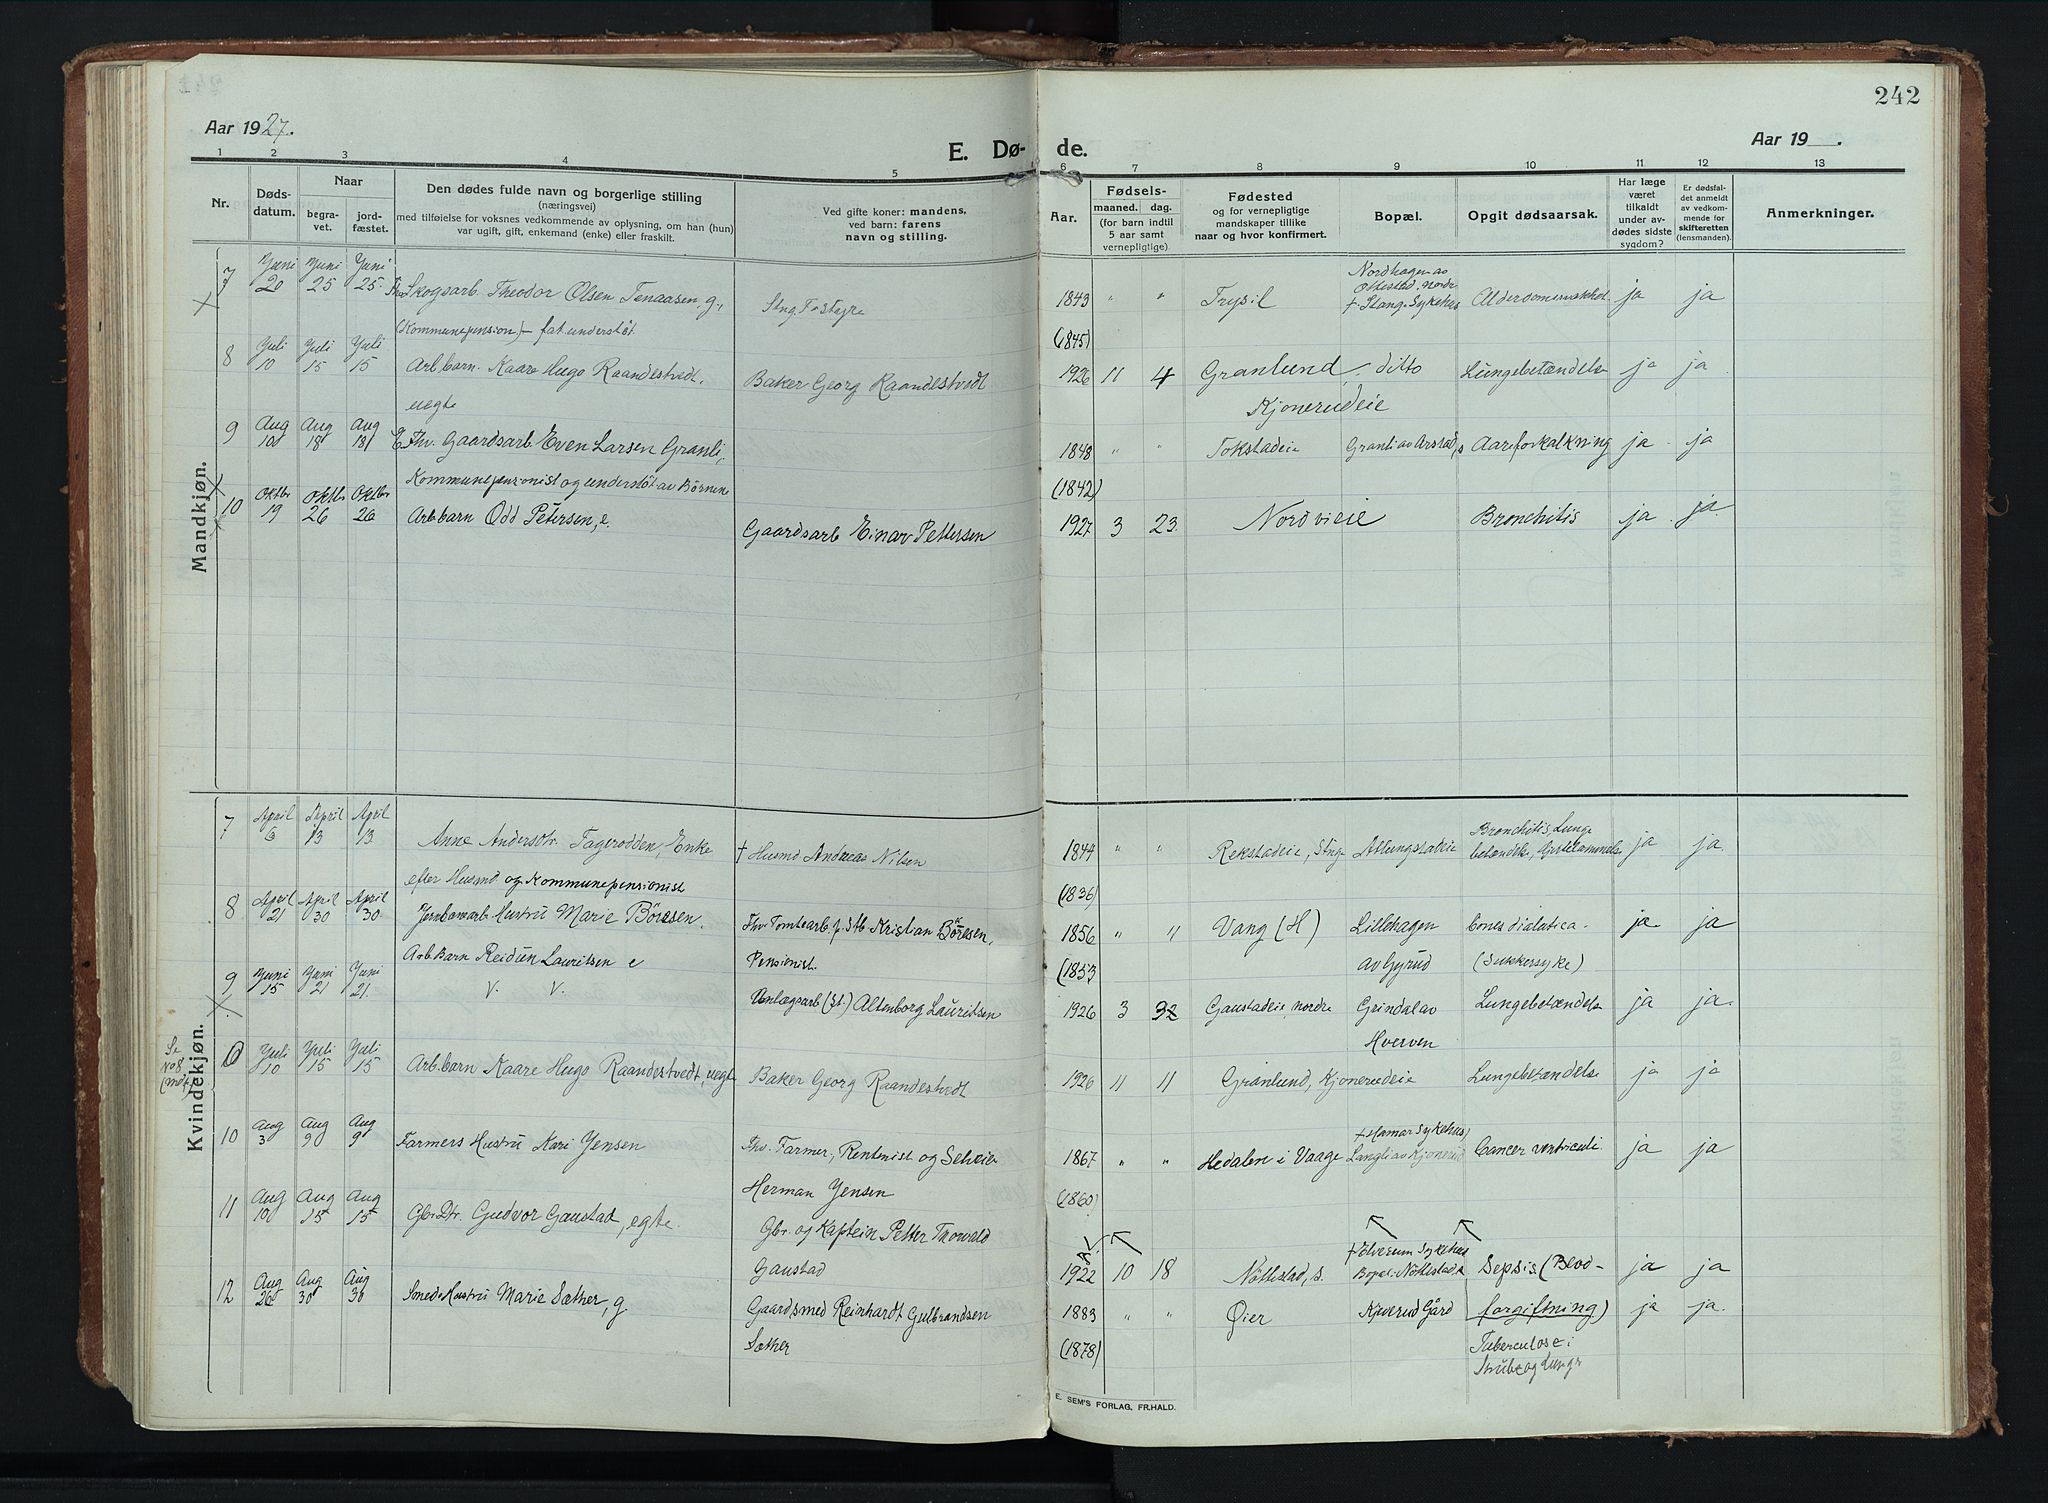 242
Aar 1927.
E. Dø-
de.
Aar 19 .
1 2 3 4 5 6 7 8 9 10 11 12 13
Nr.
Døds-
datum.
Naar
begra-
vet.
jord-
fæstet.
Den dødes fulde navn og borgerlige stilling
(næringsvei)
med tilføielse for voksnes vedkommende av oplysning, om han (hun)
var ugift, gift, enkemand (enke) eller fraskilt.
Ved gifte koner: mandens,
ved barn: farens
navn og stilling.
Aar.
Fødsels-
maaned. dag.
(for barn indtil
5 aar samt
vernepligtige).
Fødested
og for vernepligtige
mandskaper tillike
naar og hvor konfirmert.
Bopæl.
Opgit dødsaarsak.
Har læge
været
tilkaldt
under av-
dødes sidste
sygdom?
Er dødsfal-
det anmeldt
av vedkom-
mende for
skifteretten
(lensmanden).
Anmerkninger.
Mandkjøn.
7 Juni 20 Juni 25 Juni 25 Skogsarb. Theodor Olsen Tenaasen, g.,
(Kommunepension) - fat. understøt
1843 " " Trysil Nordhagen av
Ottestad, nordr
+ Stang Sykehus Alderdomssvakhet ja ja
(1845)
8 Juli 10 Juli 15 Juli 15 Arb.barn. Kaare Hugo Raandestvedt,
uegte
Baker Georg Raandestvedt 1926 11 4 Granlund, ditto Lungebetændelse ja ja
Kjonerudeie
9 Aug 10 Aug 18 Aug 18 Fhv. Gaardsarb. Even Larsen Granli,
Kommunepensionist og understøt av Børnene
1848 " " Tokstadeie Granli av Arstad, s Aareforkalkning ja ja
(1842)
10 Oktbr 19 Oktbr 26 Oktbr 26 Arb.barn Odd Petersen, e.
Gaardsarb Einar Pettersen 1927 3 23 Nordvieie Bronchitis ja ja
Kvindekjøn.
7 April 6 April 13 April 13 Anne Andersdtr. Tagerødden, Enke
efter Husmd og Kommunepensionist
+ Husmd Andreas Nilsen 1844 " " Rekstadeie, Stng. Bronchitis, Lunge
betændelse, ja ja
(1836)
8 April 21 April 30 April 30 Jernbanearb Hustru Marie Børesen.
Fhv. Tomtearb. p. Stb Kristian Børesen,
Pensionist.
1856 " " Vang (H) Lillehagen
av Gyrud ja ja
(Sukkersyke)
(1853
9 Juni 15 Juni 21 Juni 21. Arb. Barn Reidun Lauritsen e
v. v.
Anlægsarb (St.) Altenborg Lauritsen 1926 3 Gaustadeie, nordre Grindal av
Hverven Lungebetændelse ja ja
Se
No 8,
Juli 10 Juli 15 Juli 15 Arb.barn Kaare Hugo Raandestvedt, uegte
Baker Georg Raandestvedt 1926 11 11 Granlund, Kjonerudeie Lungebetændelse ja ja
10 Aug 3 Aug 9 Aug 9 Farmers Hustru Kari Jensen
Fhv. Farmer, Rentenist og Selveier
Herman Jensen
1867 " " Hedalen i Vaage + Hamar Sykehus,
Langli av Kjonerud Cancer ventriculi. ja ja
(1860)
11 Aug 10 Aug 15 Aug 15 Gbr.Dtr. Gudvor Gaustad, egte.
Gbr. og Kaptein Petter Thorvald
Gaustad
1922 10 18 Nøttestad, s. Sykehus
Bopæl: Nøttestad, s Sepsis (Blod-
forgiftning) ja ja
12 Aug 26 Aug 30 Aug 30 Smeds Hustru Marie Sæther, g.
Gaardsmed Reinhardt Gulbrandsen
Sæther
1883 " " Øier Kjøverud Gård ja ja.
(1878)
Tuberculose i
Strube og Lunge
E. SEM'S FORLAG, FR.HALD.